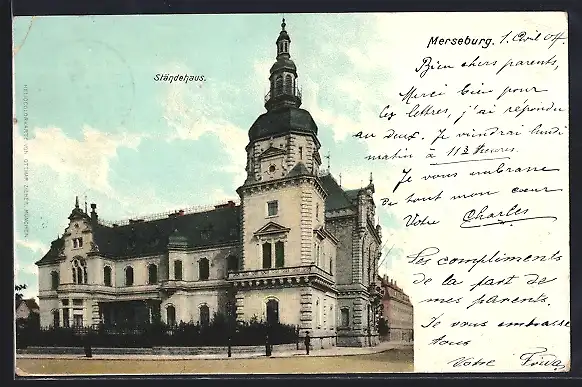 Merseburg. 1. Avril 04
Ständehaus.
Bien chers parents,
Merci bien pour
les lettres, j'ai répondu
aux deux. Je viendrai lundi
matin à 11 heures.
Je vous embrasse
de tout mon cœur
Votre Charles
Les compliments
de la part de
mes parents.
Je vous embrasse
tous
Votre